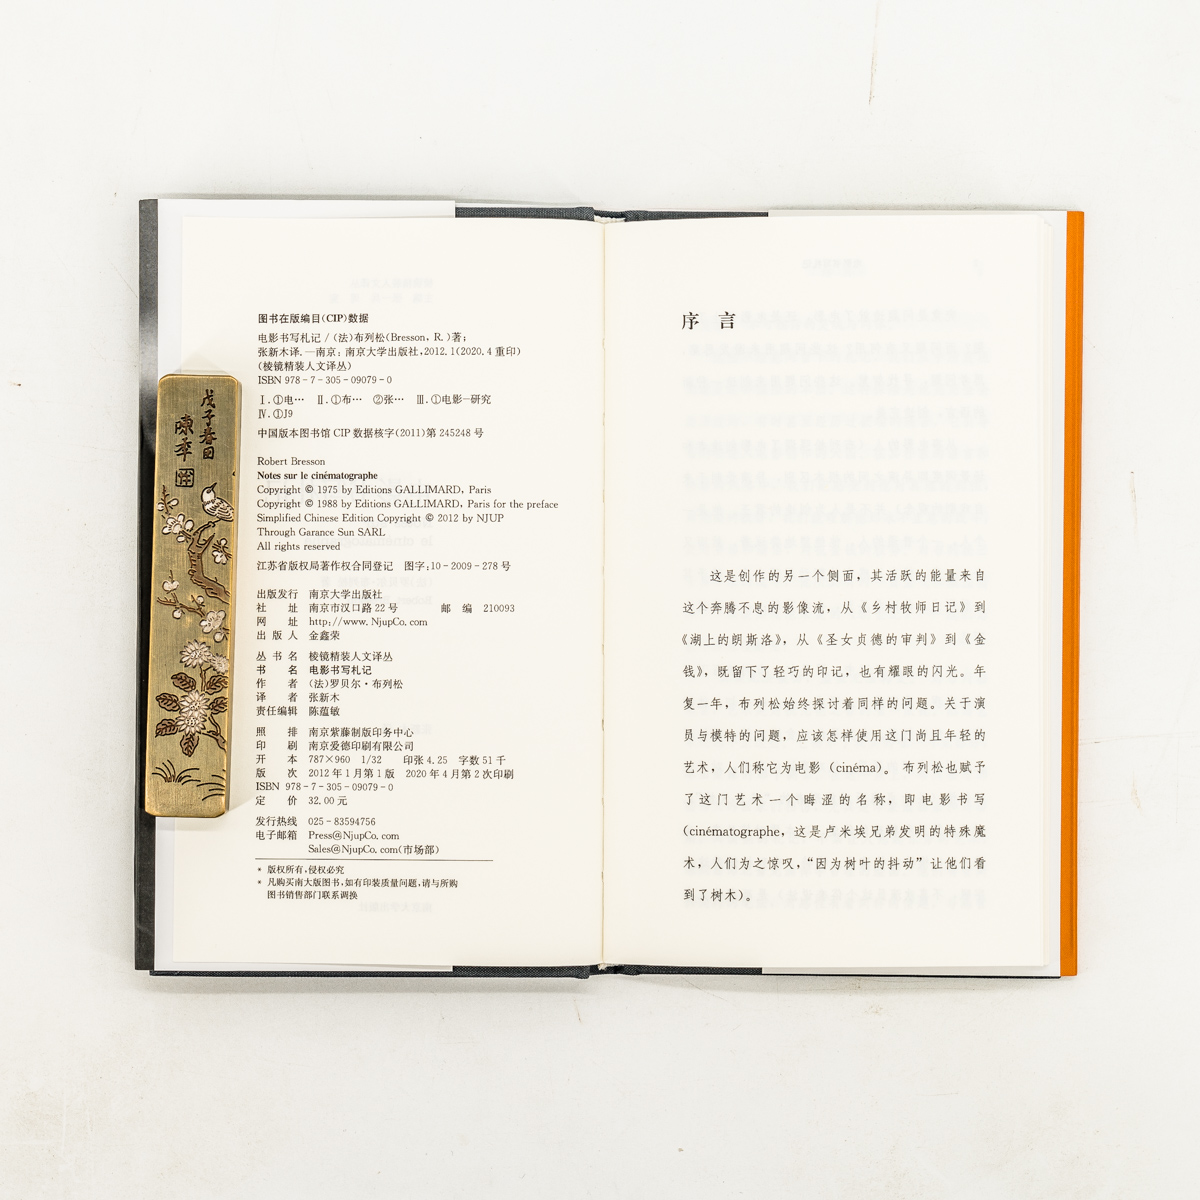 戊子春日
陳年
图书在版编目(CIP)数据
电影书写札记 / (法)布列松(Bresson, R.)著;
张新木译. —南京: 南京大学出版社,2012.1(2020.4 重印)
(棱镜精装人文译丛)
ISBN 978-7-305-09079-0
Ⅰ.①电… Ⅱ.①布… ②张… Ⅲ.①电影—研究
Ⅳ.①J9
中国版本图书馆 CIP 数据核字(2011)第 245248 号
Robert Bresson
Notes sur le cinématographe
Copyright © 1975 by Editions GALLIMARD, Paris
Copyright © 1988 by Editions GALLIMARD, Paris for the preface
Simplified Chinese Edition Copyright © 2012 by NJUP
Through Garance Sun SARL
All rights reserved
江苏省版权局著作权合同登记 图字:10-2009-278 号
出版发行 南京大学出版社
社 址 南京市汉口路 22 号 邮 编 210093
网 址 http://www.NjupCo.com
出 版 人 金鑫荣
丛 书 名 棱镜精装人文译丛
书 名 电影书写札记
作 者 (法)罗贝尔·布列松
译 者 张新木
责任编辑 陈蕴敏
照 排 南京紫藤制版印务中心
印 刷 南京爱德印刷有限公司
开 本 787×960 1/32 印张 4.25 字数 51 千
版 次 2012 年 1 月第 1 版 2020 年 4 月第 2 次印刷
ISBN 978-7-305-09079-0
定 价 32.00 元
发行热线 025-83594756
电子邮箱 Press@NjupCo.com
Sales@NjupCo.com(市场部)
* 版权所有,侵权必究
* 凡购买南大版图书,如有印装质量问题,请与所购
图书销售部门联系调换
序 言
这是创作的另一个侧面，其活跃的能量来自
这个奔腾不息的影像流，从《乡村牧师日记》到
《湖上的朗斯洛》，从《圣女贞德的审判》到《金
钱》，既留下了轻巧的印记，也有耀眼的闪光。年
复一年，布列松始终探讨着同样的问题。关于演
员与模特的问题，应该怎样使用这门尚且年轻的
艺术，人们称它为电影（cinéma）。布列松也赋予
了这门艺术一个晦涩的名称，即电影书写
(cinématographe，这是卢米埃兄弟发明的特殊魔
术，人们为之惊叹，“因为树叶的抖动”让他们看
到了树木)。